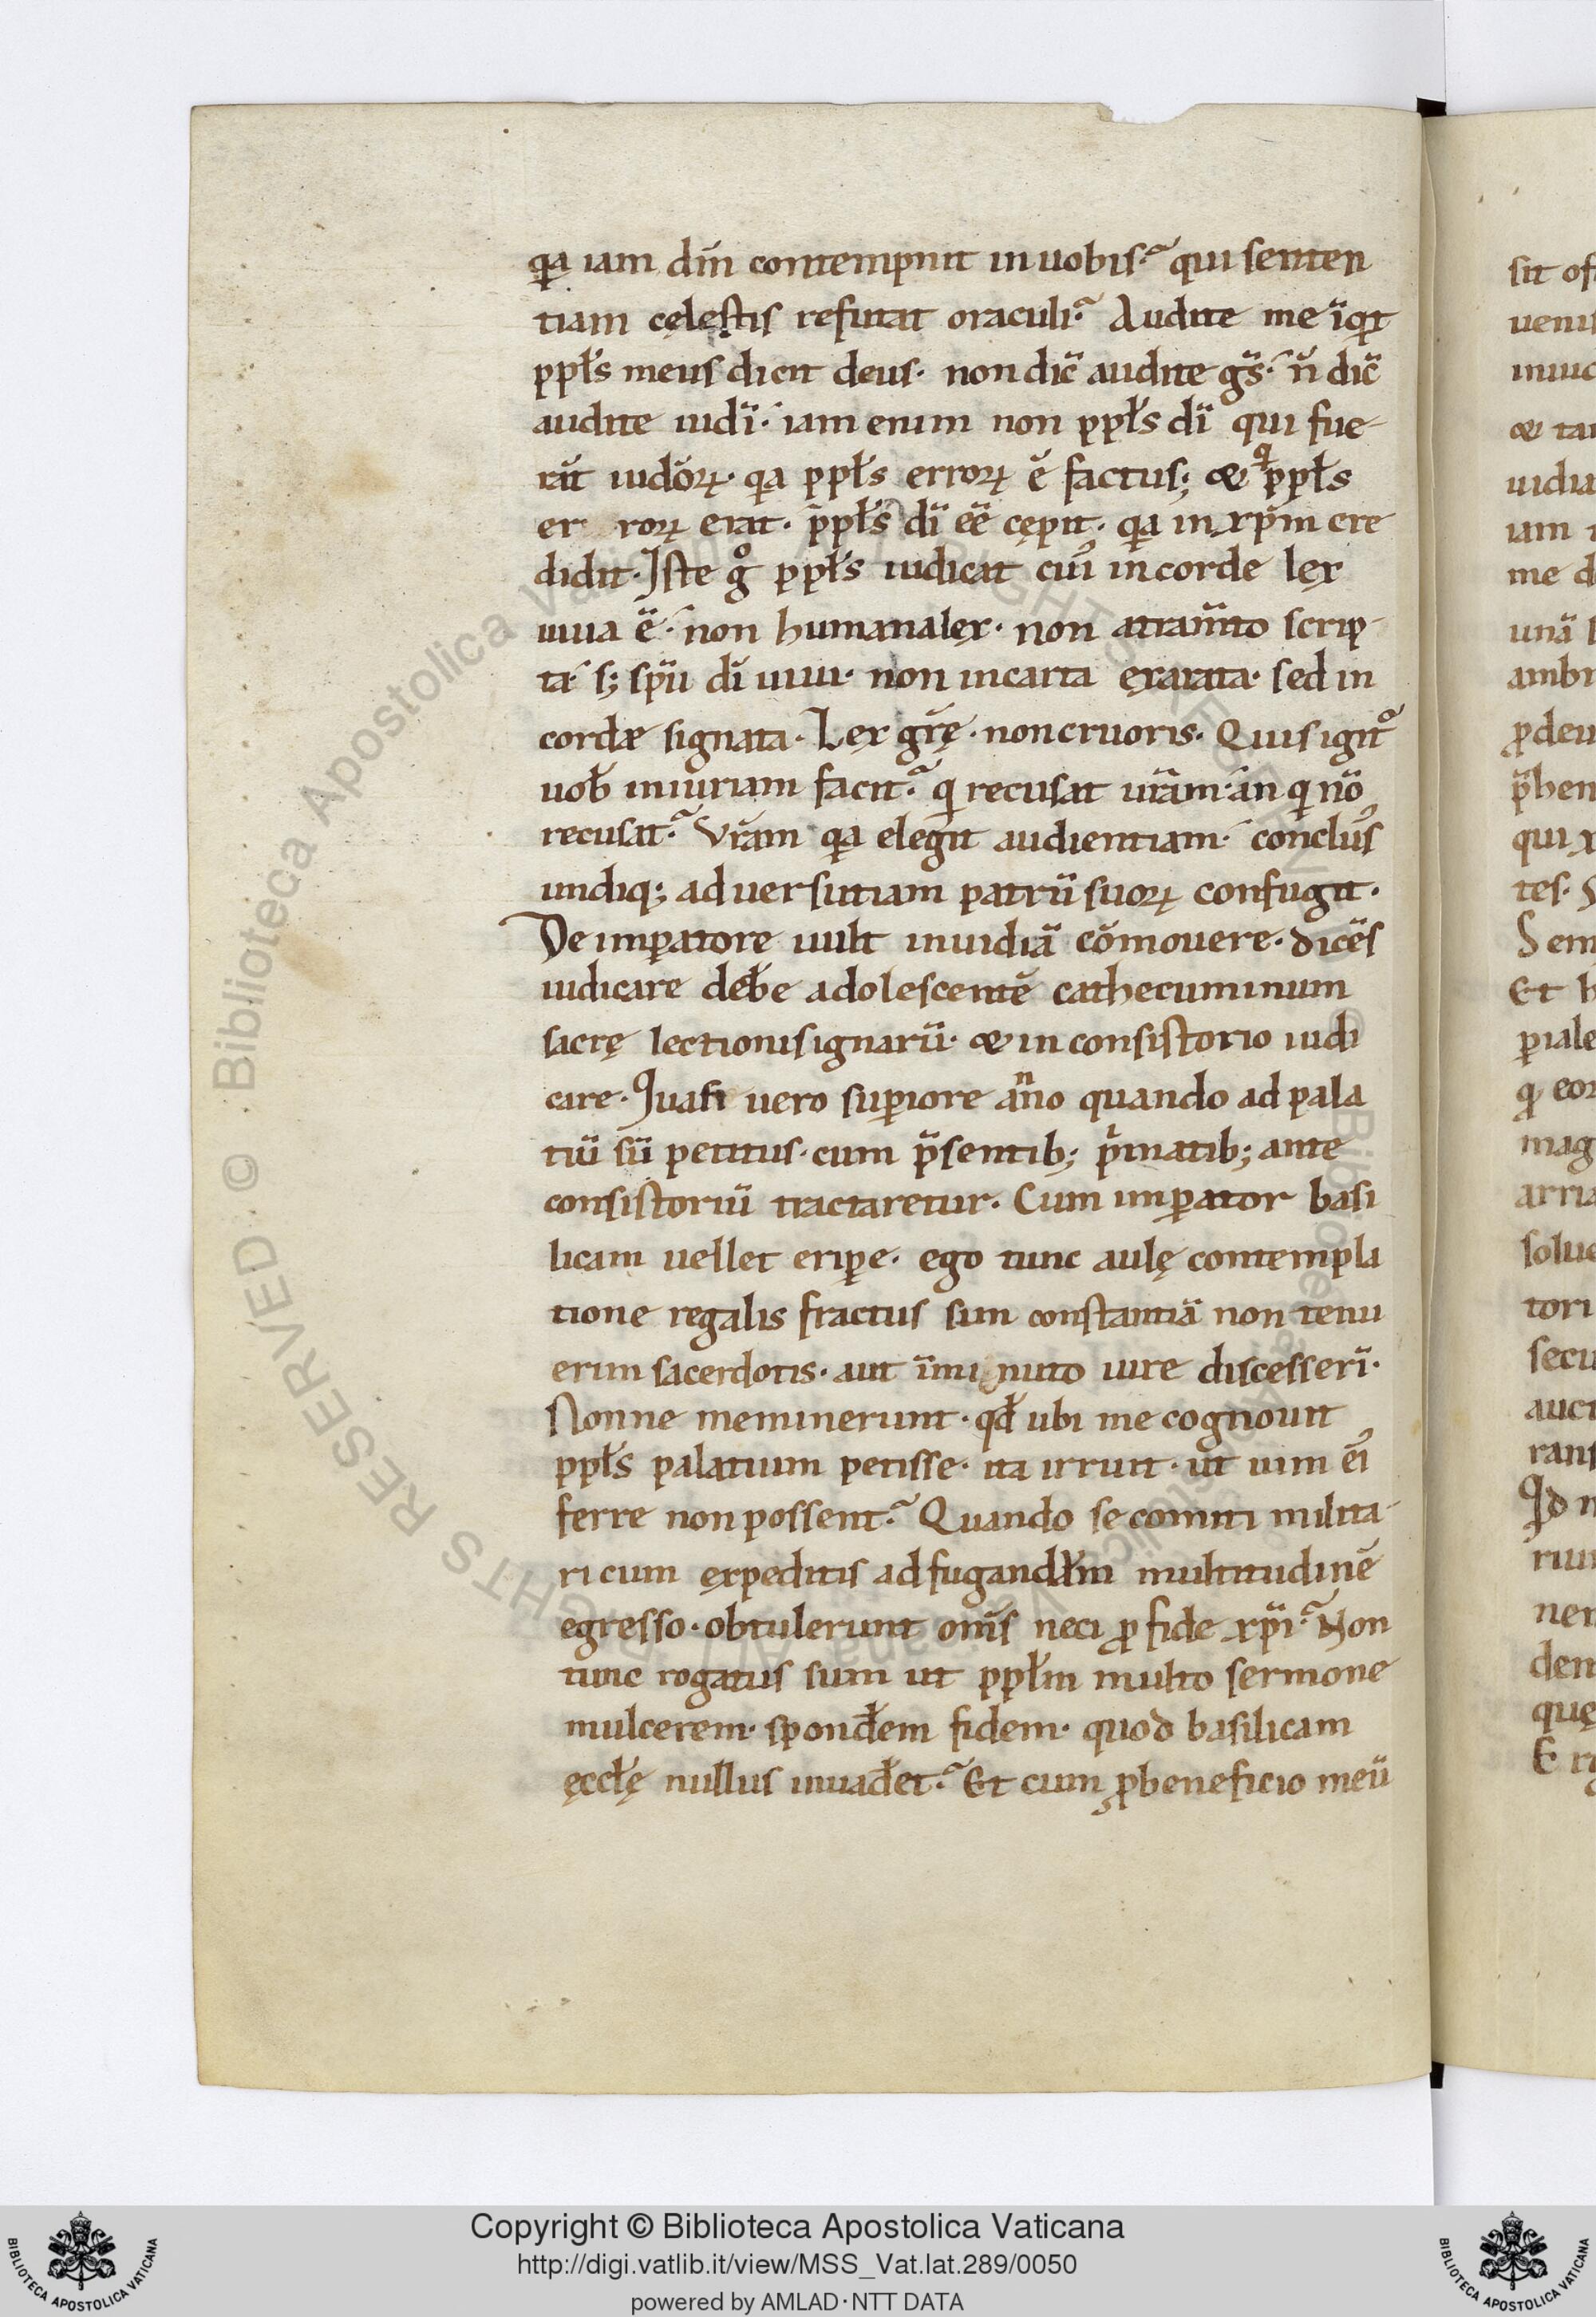 qa iam dm̄ contempnit in uobis. qui senten
tiam cęlestis refutat oraculi. Audite me iqt
pplͫs meus dicit deus. non dic̄ audite gs̄. n̄ dic̄
audite iudi. iam enim non ppls dī qui fue-
rāt iudōꝝ. qa ppls erroꝝ ē factus; & q ppls
er roꝝ erat. ppls dī ēē cępit. qa in xp̄m cre
didit. Iste gͦ ppls iudicat cuiꝰ in corde lex
uiua ē. non humana lex. non atram̄to scrip-
ta s; sp̄u dī uiui. non in carta exarata. sed in
cordæ signata. Lex gr̄ę. non cruoris. Quis igitͦ
uob̄ iniuriam facit. q recusat ur̄am. an q nō
recusat. Vr̄am qa elegit audientiam. conclusꝰ
undiq; ad uersutiam patrū suoꝝ confugit.
De imꝑatore uult inuidiā cōmouere. dicēs
iudicare deb̄e adolescentē cathecuminum
sacrę lectionis ignarū. & in consistorio iudi
care. Quasi uero suꝑiore anno quando ad pala
tiū sū petitus. cum p̄sentib; p̄matib; ante
consistoriū tractaretur. Cum imꝑator basi
licam uellet eriꝑe. ego tunc aulę contempla
tione regalis fractus sim constantiā non tenu
erim sacerdotis. aut īmi nuto iure discesserī.
Nonne meminerunt. qd̄ ubi me cognouit
ppls palatium petisse. ita irruit. ut uim eiꝰ
ferre non possent. Quando se comiti milita-
ri cum expeditis ad fugandam multitudinē
egresso. obtulerunt om̄s neci ꝓ fide xp̄i. Non
tunc rogatus sum ut pplm multo sermone
mulcerem. spond̄em fidem. quod basilicam
ęccłę nullus inuad̄et. Et cum ꝓ beneficio meū
sit of
uenis
ambr
ꝓdeu
qui x
tes. S
Sem
Et h
ꝑiale
q eor
mag
arria
solue
tori
secu
auct
rans
Qd n
rium
nen
dem
quę
Copyright © Biblioteca Apostolica Vaticana
http://digi.vatlib.it/view/MSS_Vat.lat.289/0050
powered by AMLAD·NTT DATA
BIBLIOTECA APOSTOLICA VATICANA
BIBLIOTECA APOSTOLICA VATICANA